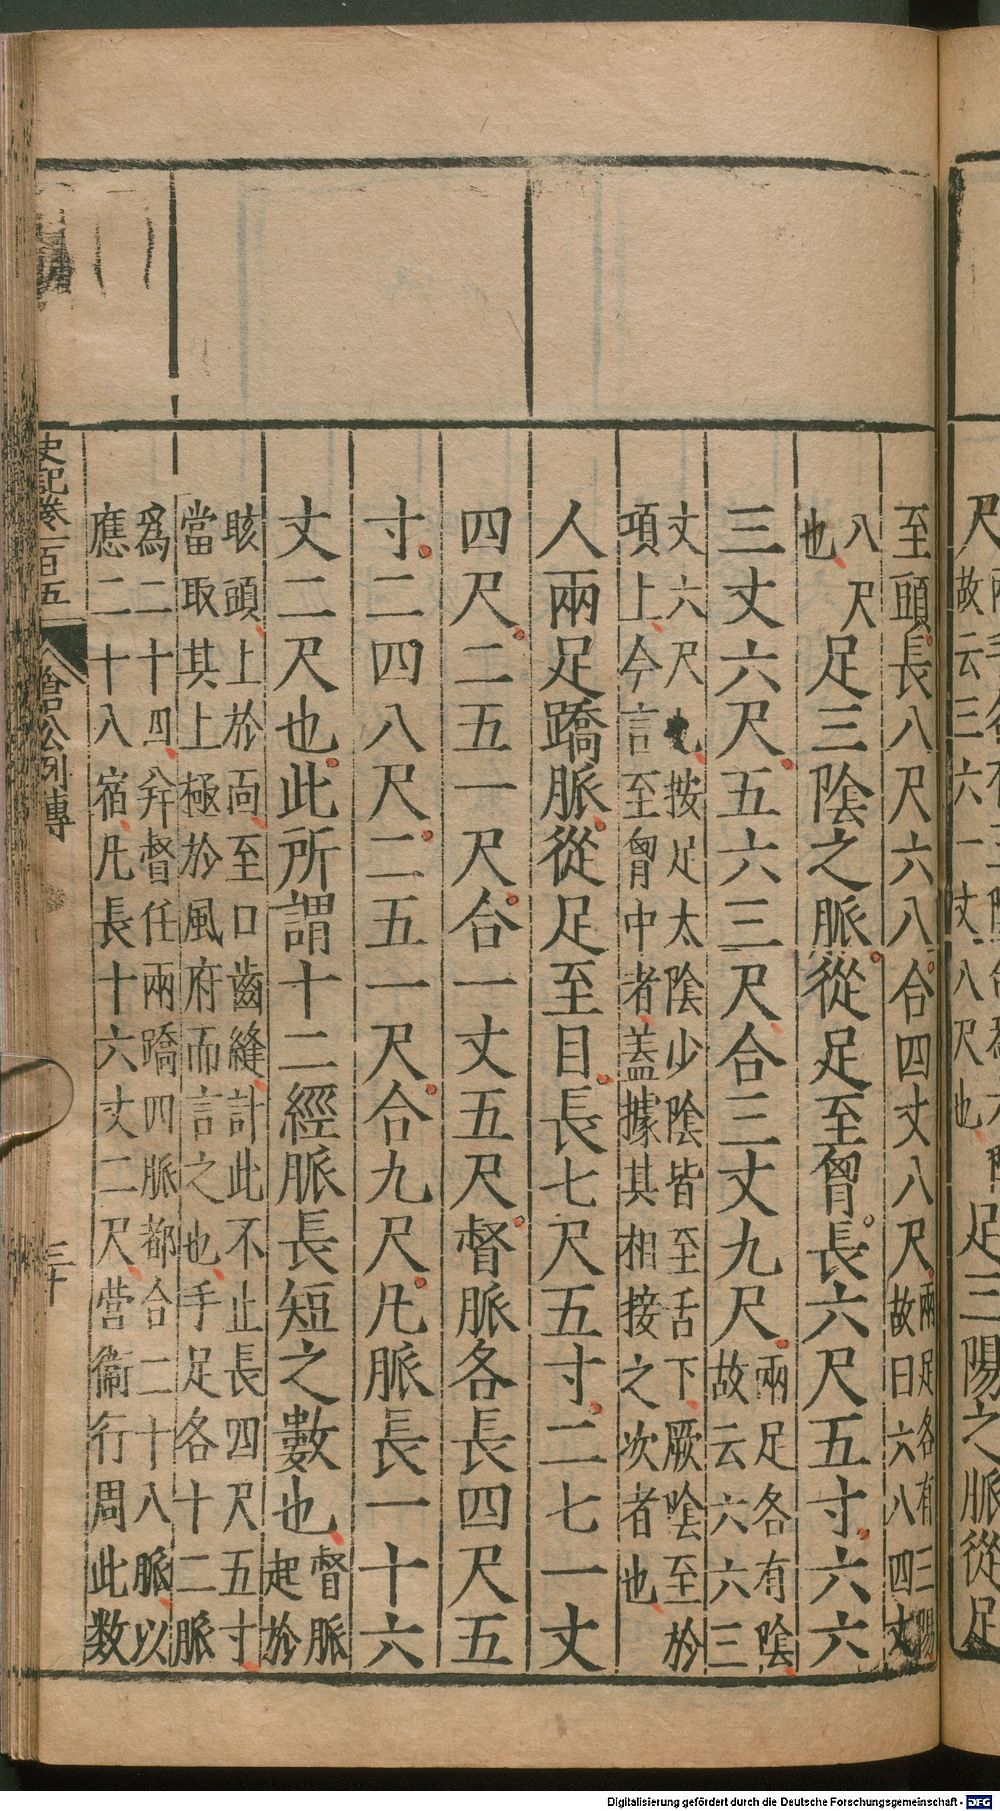 尺
故云三六一丈八尺也
足三陽之脈從足
至頭長八尺六八合四丈八尺
兩足各有三陽
故曰六八四丈
八尺
也
足三陰之脈從足至胷長六尺五寸六六
三丈六尺五六三尺合三丈九尺
兩足各有陰
故云六六三
丈六尺也按足太陰少陰皆至舌下厥陰至於
項上今言至胷中者蓋據其相接之次者也
人兩足蹻脈從足至目長七尺五寸二七一丈
四尺二五一尺合一丈五尺督脈各長四尺五
寸二四八尺二五一尺合九尺凡脈長一十六
丈二尺也此所謂十二經脈長短之數也
督脈
起於
頭上於面至口齒縫計此不止長四尺五寸
當取其上極於風府而言之也手足各十二脈
爲二十四幷督任兩蹻四脈都合二十八脈以
應二十八宿凡長十六丈二尺營衞行周此数
史記卷一百五
倉公列傳
三十
Digitalisierung gefördert durch die Deutsche Forschungsgemeinschaft - DFG